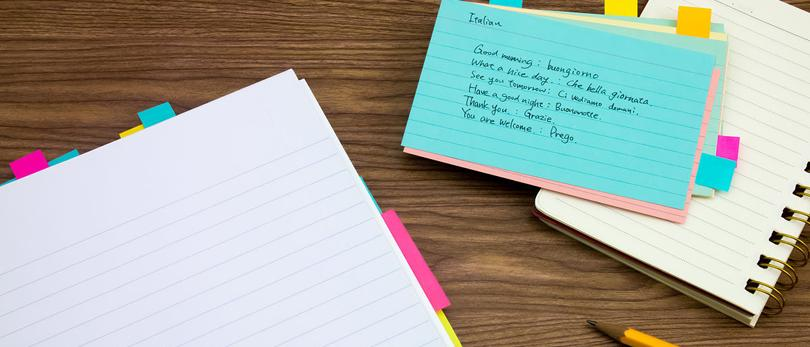 Italian
Good morning : buongiorno
What a nice day. : che bella giornata
See you tomorrow : Ci vediamo domani.
Have a good night : Buonanotte.
Thank you. : Grazie.
You are welcome. : Prego.